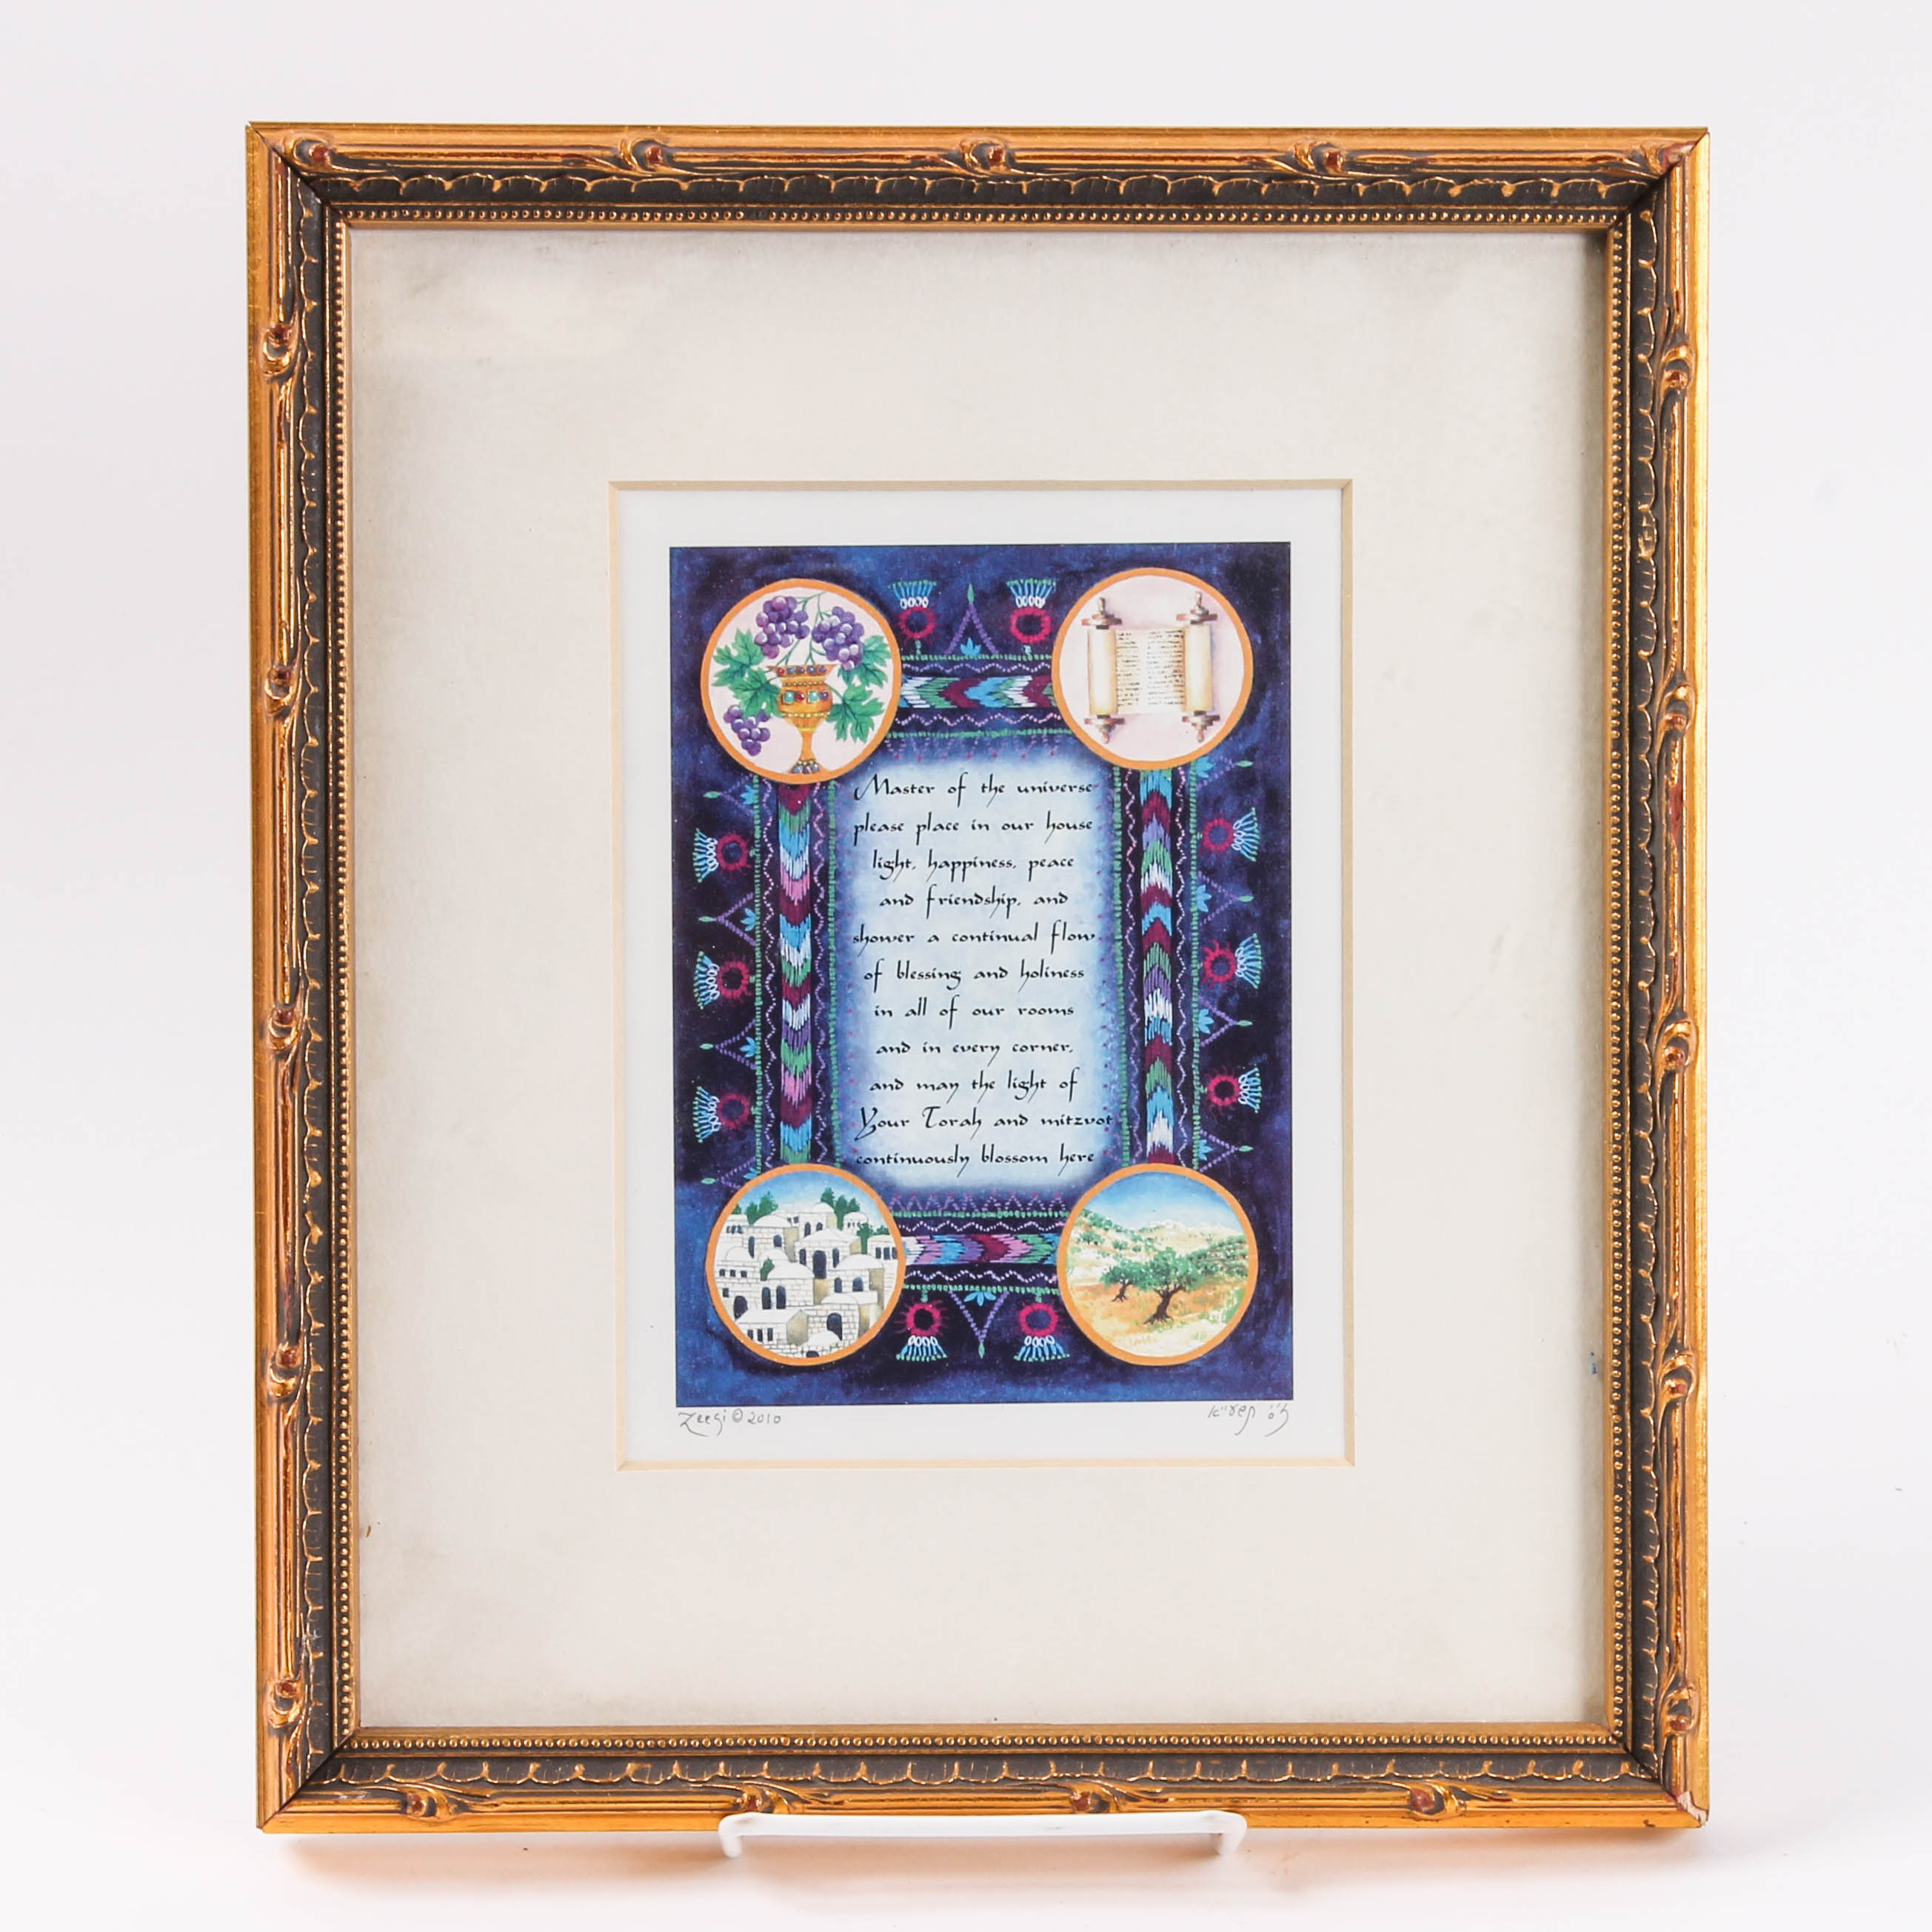 Master of the universe
please place in our house
light, happiness, peace
and friendship, and
shower a continual flow
of blessing and holiness
in all of our rooms
and in every corner,
and may the light of
Your Torah and mitzvot
continuously blossom here
© 2010